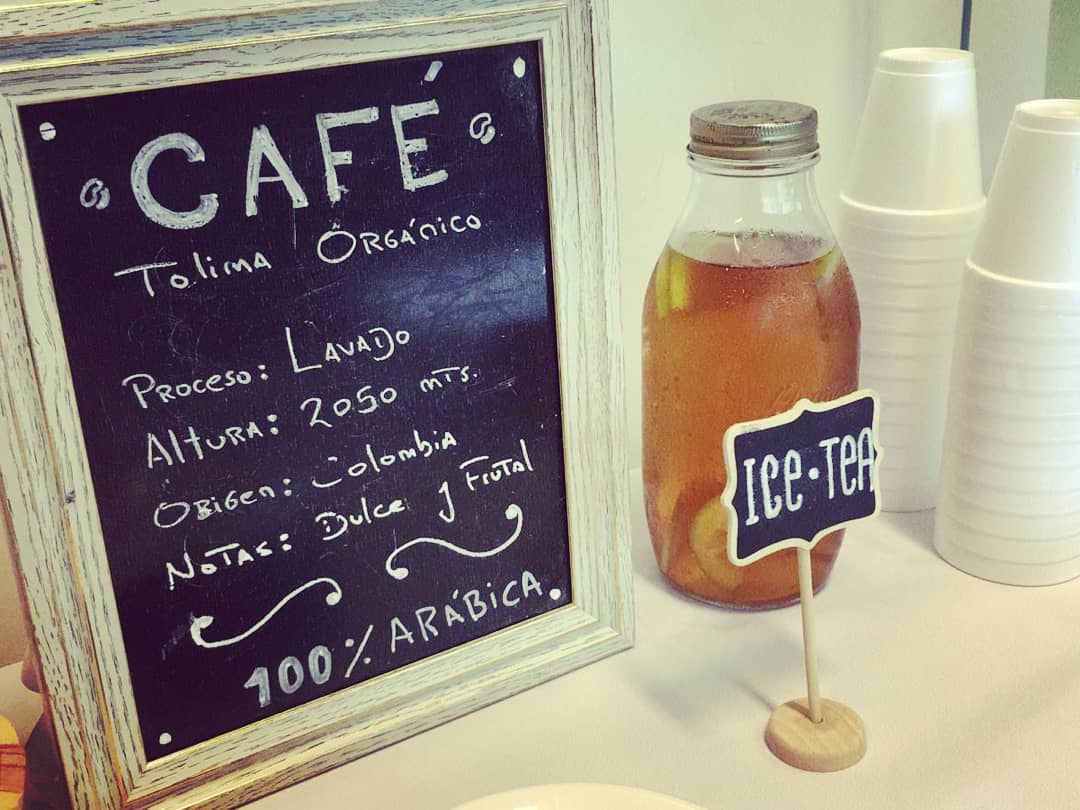 CAFÉ
Tolima Orgánico
Proceso: Lavado
Altura: 2050 mts.
Origen: Colombia
Notas: Dulce y Frutal
100% ARÁBICA.
ICE·TEA